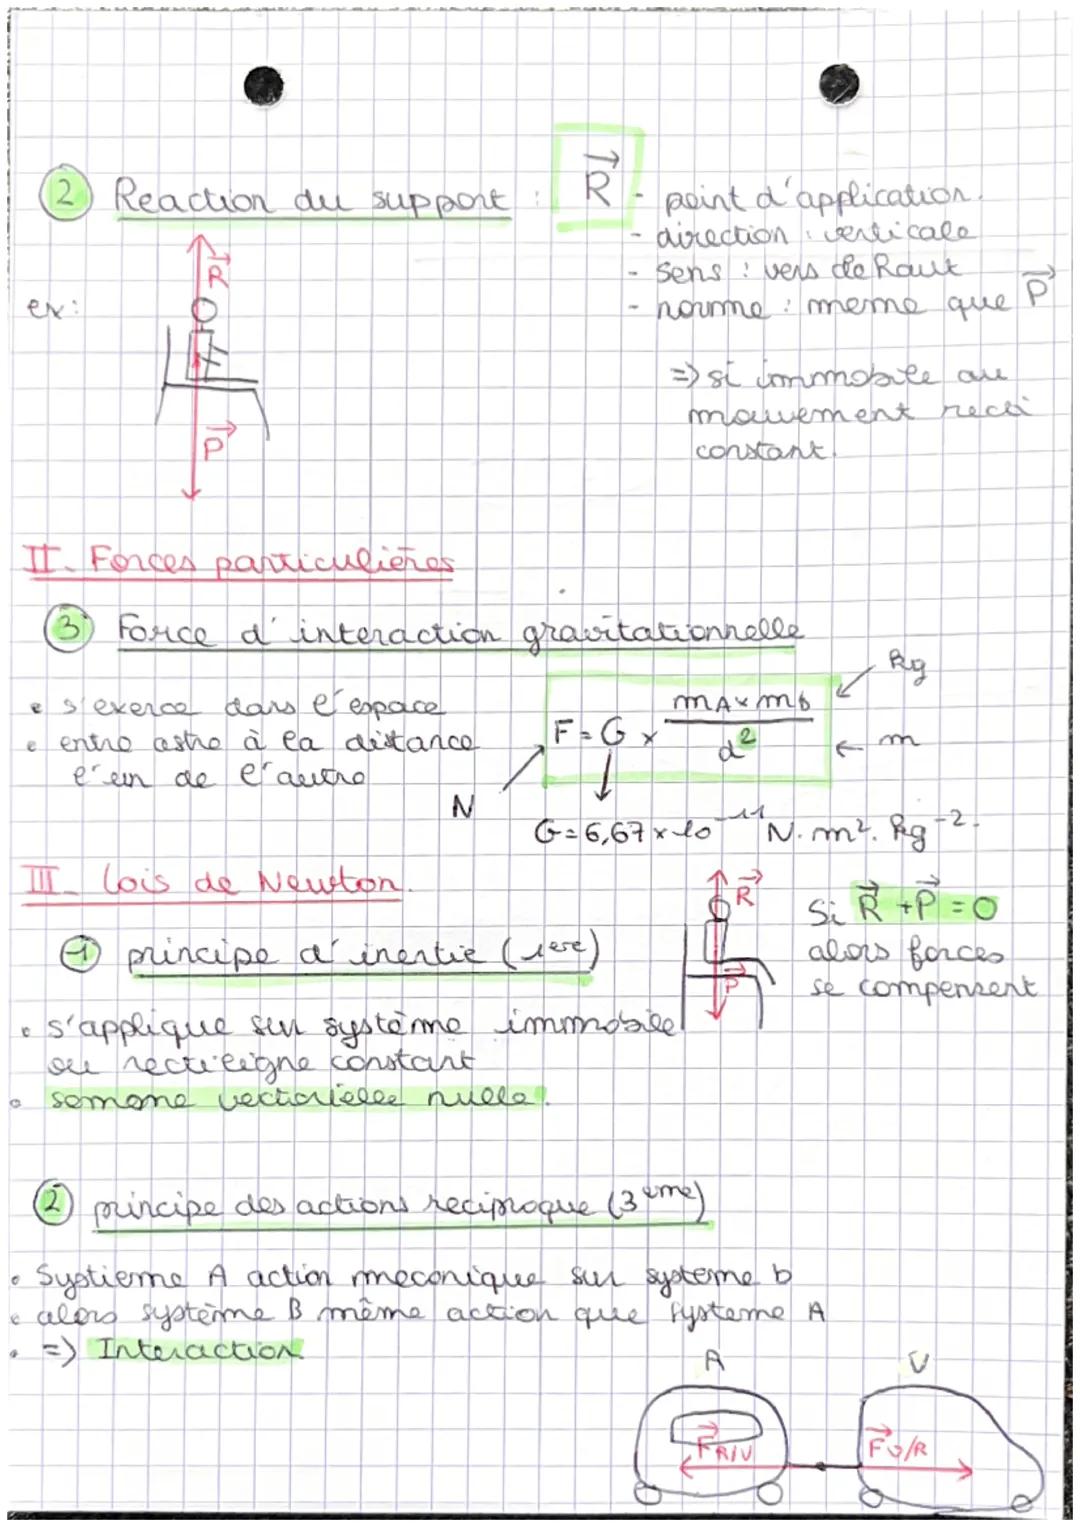 2 Reaction du support : R - point d'application.
- direction : verticale
- sens : vers de haut
- norme : meme que P
R
ex:
P
=> si immobile ou
mouvement recti
constant.
II - Forces particulières
3 Force d'interaction gravitationnelle
• s'exerce dans l'espace
• entre astre à la distance
l'un de l'autre
F = G x mA x mb / d²
kg
m
N
G = 6,67 x 10⁻¹¹ N. m². kg⁻².
III - Lois de Newton.
1 principe d'inertie (1ere)
R
P
Si R + P = 0
alors forces
se compensent
• s'applique sur système immobile
ou rectiligne constant
• somome vectorielle nulle.
2 principe des actions reciproque (3eme)
• Systieme A action meconique sur systeme b
• alors système B même action que systeme A
• => Interaction
A V
F R/V F V/R